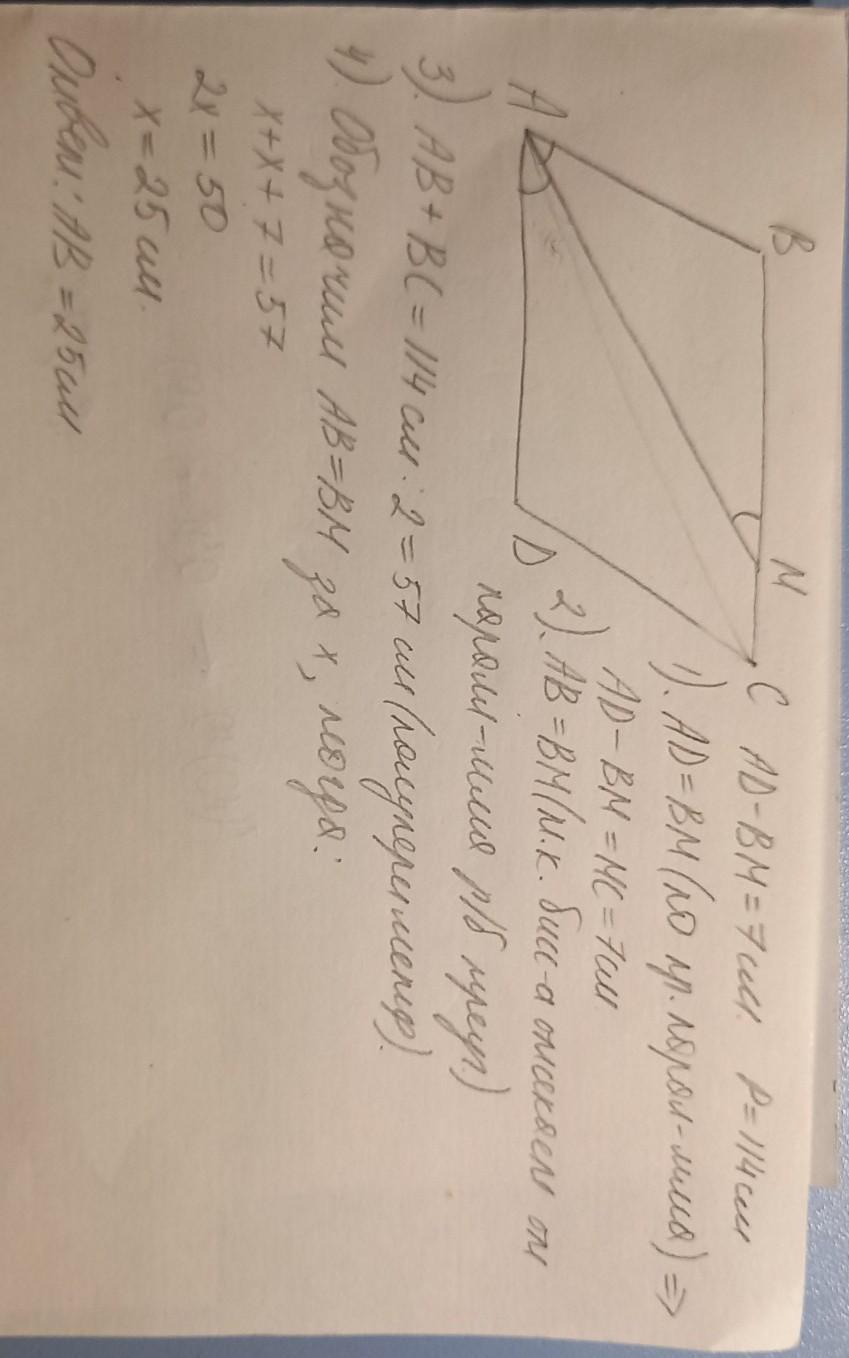 B M C
A D
AD-BM=7см. P=114см
1). AD=BM (по пр. парал-мма) =>
AD-BM=MC=7см
2). AB=BM (т.к. бисс-а отсекает от
парал-мма р/б треуг.)
3). AB+BC=114см:2=57см (полупериметр).
4). Обозначим AB=BM за x, тогда:
x+x+7=57
2x=50
x=25см.
Ответ: AB=25см